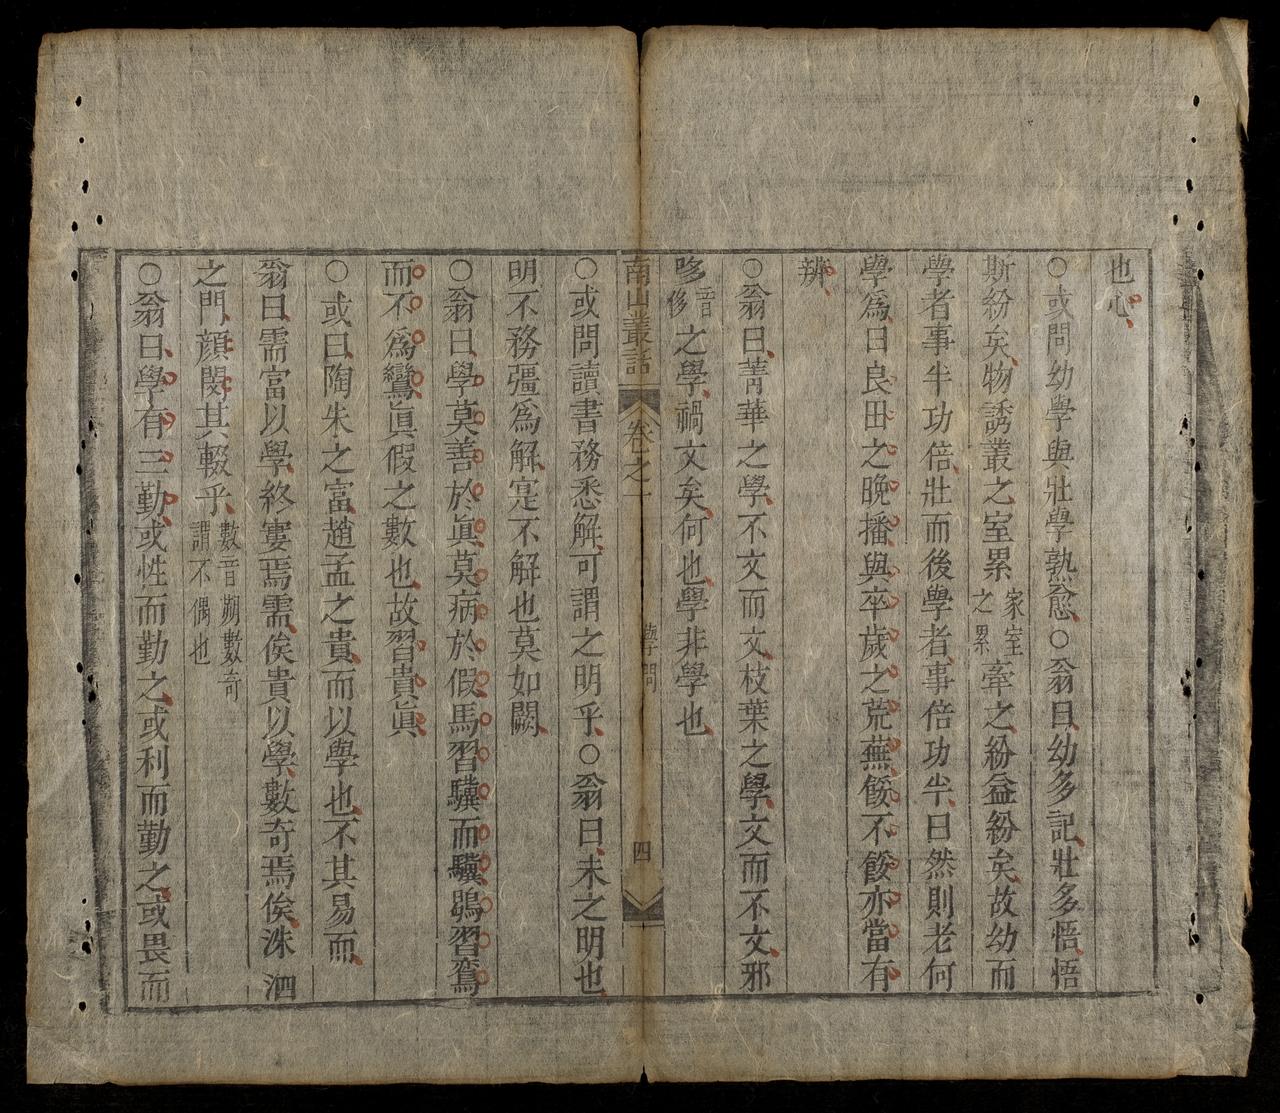 也心
○或問幼學與壯學孰愈○翁曰幼多記壯多悟悟
斯紛矣物誘叢之室累家室之累牽之紛益紛矣故幼而
學者事半功倍壯而後學者事倍功半曰然則老何
學爲曰良田之晚播與卒歲之荒蕪餒不餒亦當有
辨
○翁曰菁華之學不文而文枝葉之學文而不文邪
哆音侈之學禍文矣何也學非學也
南山叢話 卷之一 學問 四
○或問讀書務悉解可謂之明乎○翁曰未之明也
明不務彊爲解寔不解也莫如闕
○翁曰學莫善於眞莫病於假馬習驥而驥鵶習鸞
而不爲鸞眞假之數也故習貴眞
○或曰陶朱之富趙孟之貴而以學也不其易而
翁曰需富以學終窶焉需俟貴以學數奇焉俟洙泗
之門顏閔其輟乎數音朔數奇謂不偶也
○翁曰學有三勤或性而勤之或利而勤之或畏而